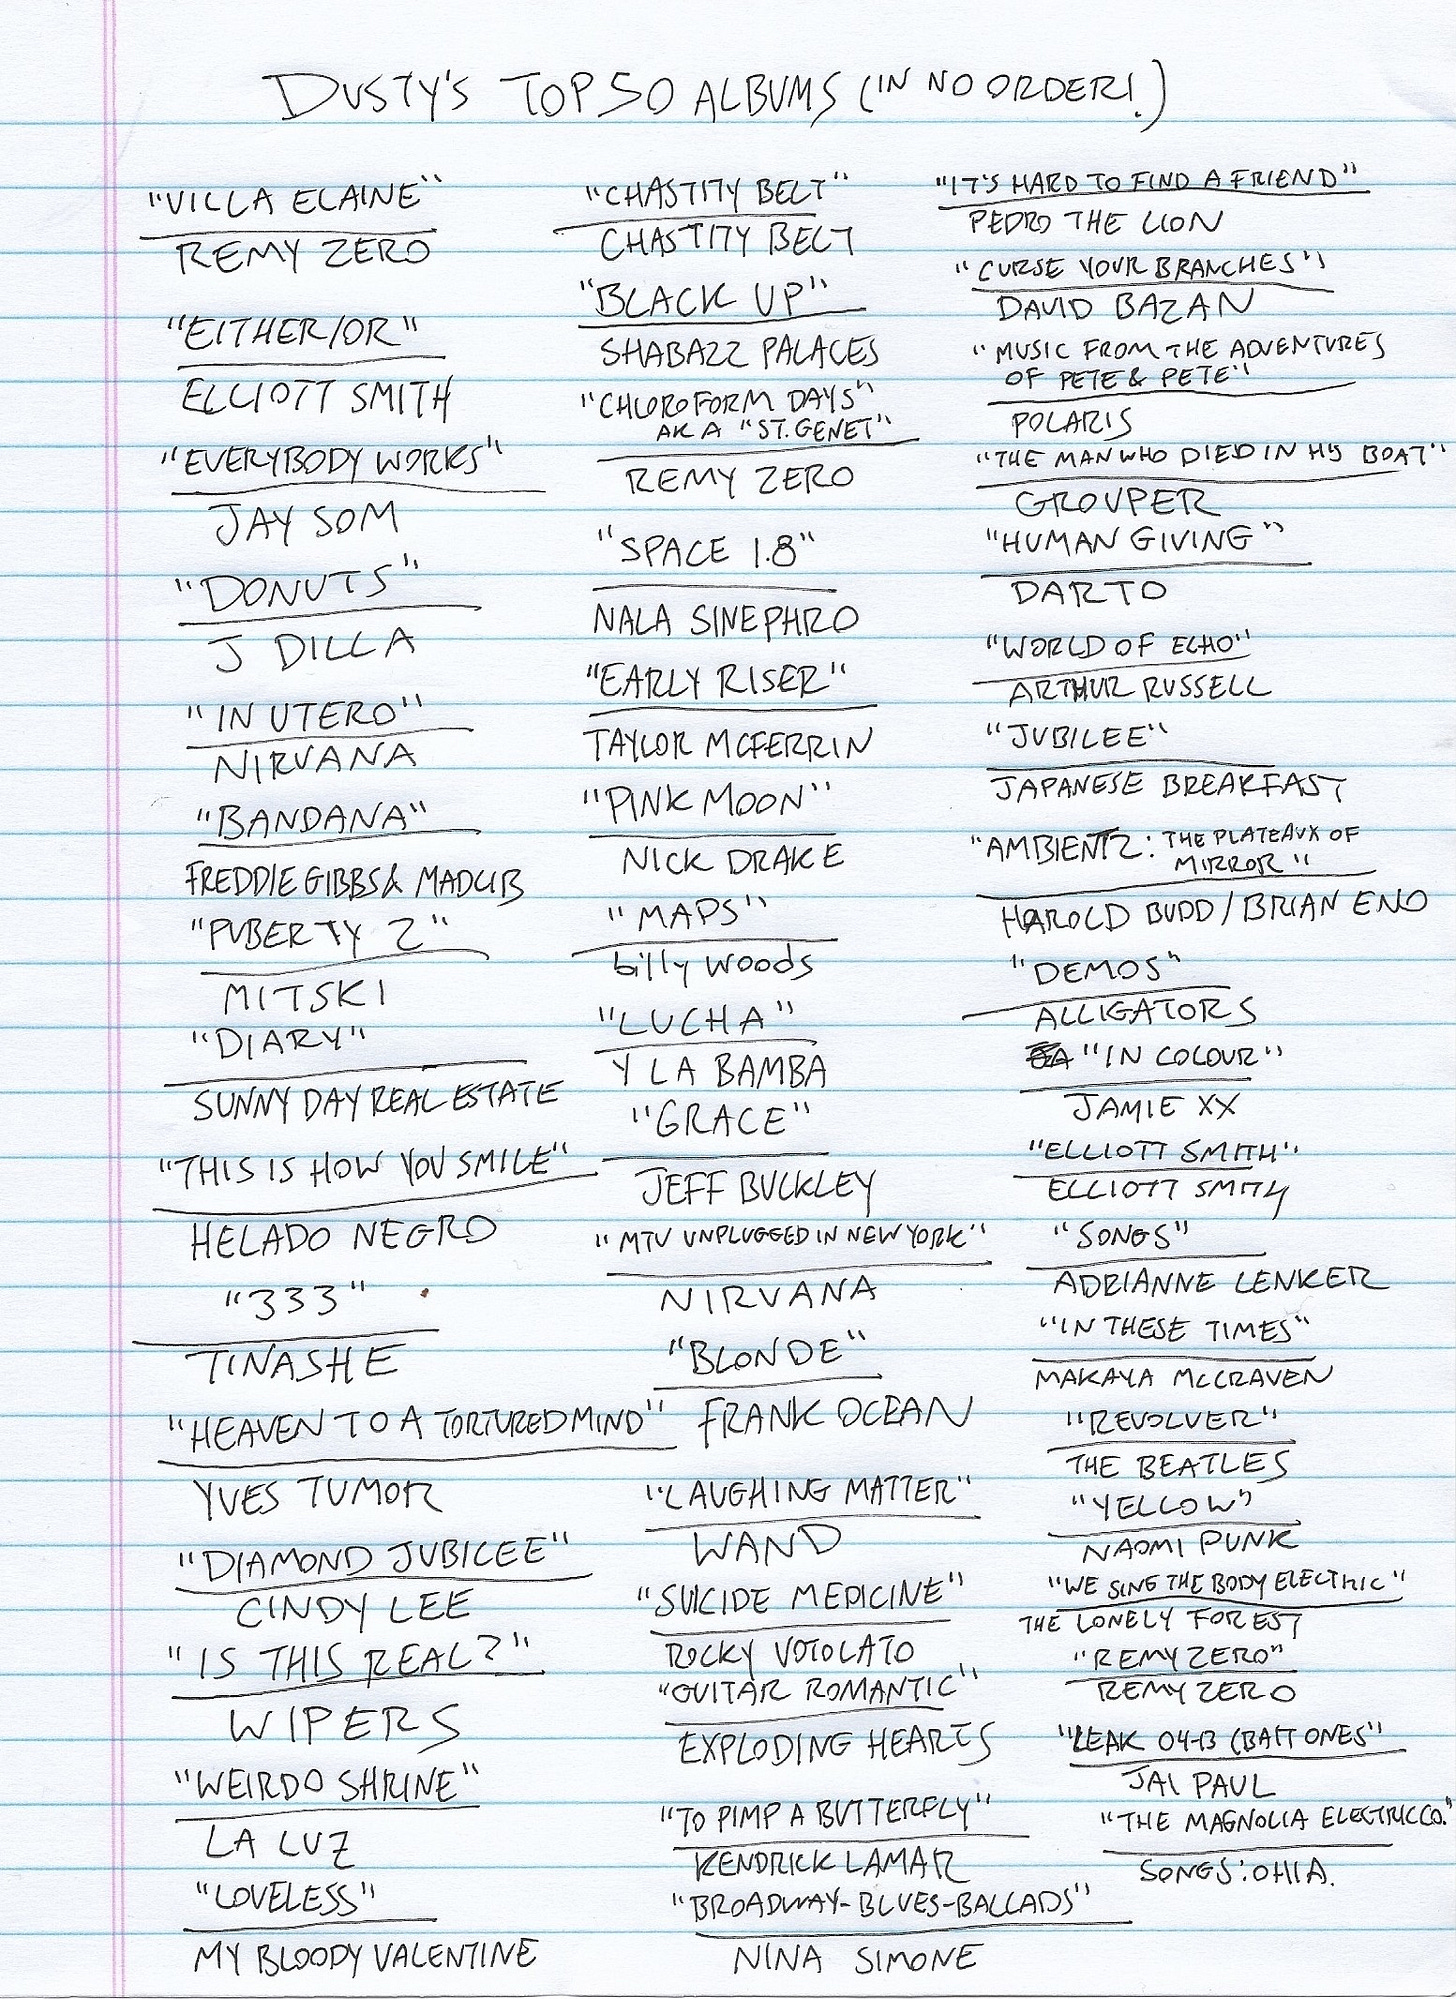 DUSTY'S TOP 50 ALBUMS (IN NO ORDER!)
"VILLA ELAINE"
REMY ZERO
"EITHER/OR"
ELLIOTT SMITH
"EVERYBODY WORKS"
JAY SOM
"DONUTS"
J DILLA
"IN UTERO"
NIRVANA
"BANDANA"
FREDDIE GIBBS & MADLIB
"PUBERTY 2"
MITSKI
"DIARY"
SUNNY DAY REAL ESTATE
"THIS IS HOW YOU SMILE"
HELADO NEGRO
"333"
TINASHE
"HEAVEN TO A TORTURED MIND"
YVES TUMOR
"DIAMOND JUBILEE"
CINDY LEE
"IS THIS REAL?"
WIPERS
"WEIRDO SHRINE"
LA LUZ
"LOVELESS"
MY BLOODY VALENTINE
"CHASTITY BELT"
CHASTITY BELT
"BLACK UP"
SHABAZZ PALACES
"CHLOROFORM DAYS"
AKA "ST. GENET"
REMY ZERO
"SPACE 1.8"
NALA SINEPHRO
"EARLY RISER"
TAYLOR MCFERRIN
"PINK MOON"
NICK DRAKE
"MAPS"
billy woods
"LUCHA"
Y LA BAMBA
"GRACE"
JEFF BUCKLEY
"MTV UNPLUGGED IN NEW YORK"
NIRVANA
"BLONDE"
FRANK OCEAN
"LAUGHING MATTER"
WAND
"SUICIDE MEDICINE"
ROCKY VOTOLATO
"GUITAR ROMANTIC"
EXPLODING HEARTS
"TO PIMP A BUTTERFLY"
KENDRICK LAMAR
"BROADWAY-BLUES-BALLADS"
NINA SIMONE
"IT'S HARD TO FIND A FRIEND"
PEDRO THE LION
"CURSE YOUR BRANCHES"
DAVID BAZAN
"MUSIC FROM THE ADVENTURES
OF PETE & PETE"
POLARIS
"THE MAN WHO DIED IN HIS BOAT"
GROUPER
"HUMAN GIVING"
DARTO
"WORLD OF ECHO"
ARTHUR RUSSELL
"JUBILEE"
JAPANESE BREAKFAST
"AMBIENT 2: THE PLATEAUX OF
MIRROR"
HAROLD BUDD / BRIAN ENO
"DEMOS"
ALLIGATORS
"IN COLOUR"
JAMIE XX
"ELLIOTT SMITH"
ELLIOTT SMITH
"SONGS"
ADRIANNE LENKER
"IN THESE TIMES"
MAKAYA MCCRAVEN
"REVOLVER"
THE BEATLES
"YELLOW"
NAOMI PUNK
"WE SING THE BODY ELECTRIC"
THE LONELY FOREST
"REMY ZERO"
REMY ZERO
"LEAK 04-13 (BAIT ONES"
JAI PAUL
"THE MAGNOLIA ELECTRIC CO."
SONGS: OHIA.